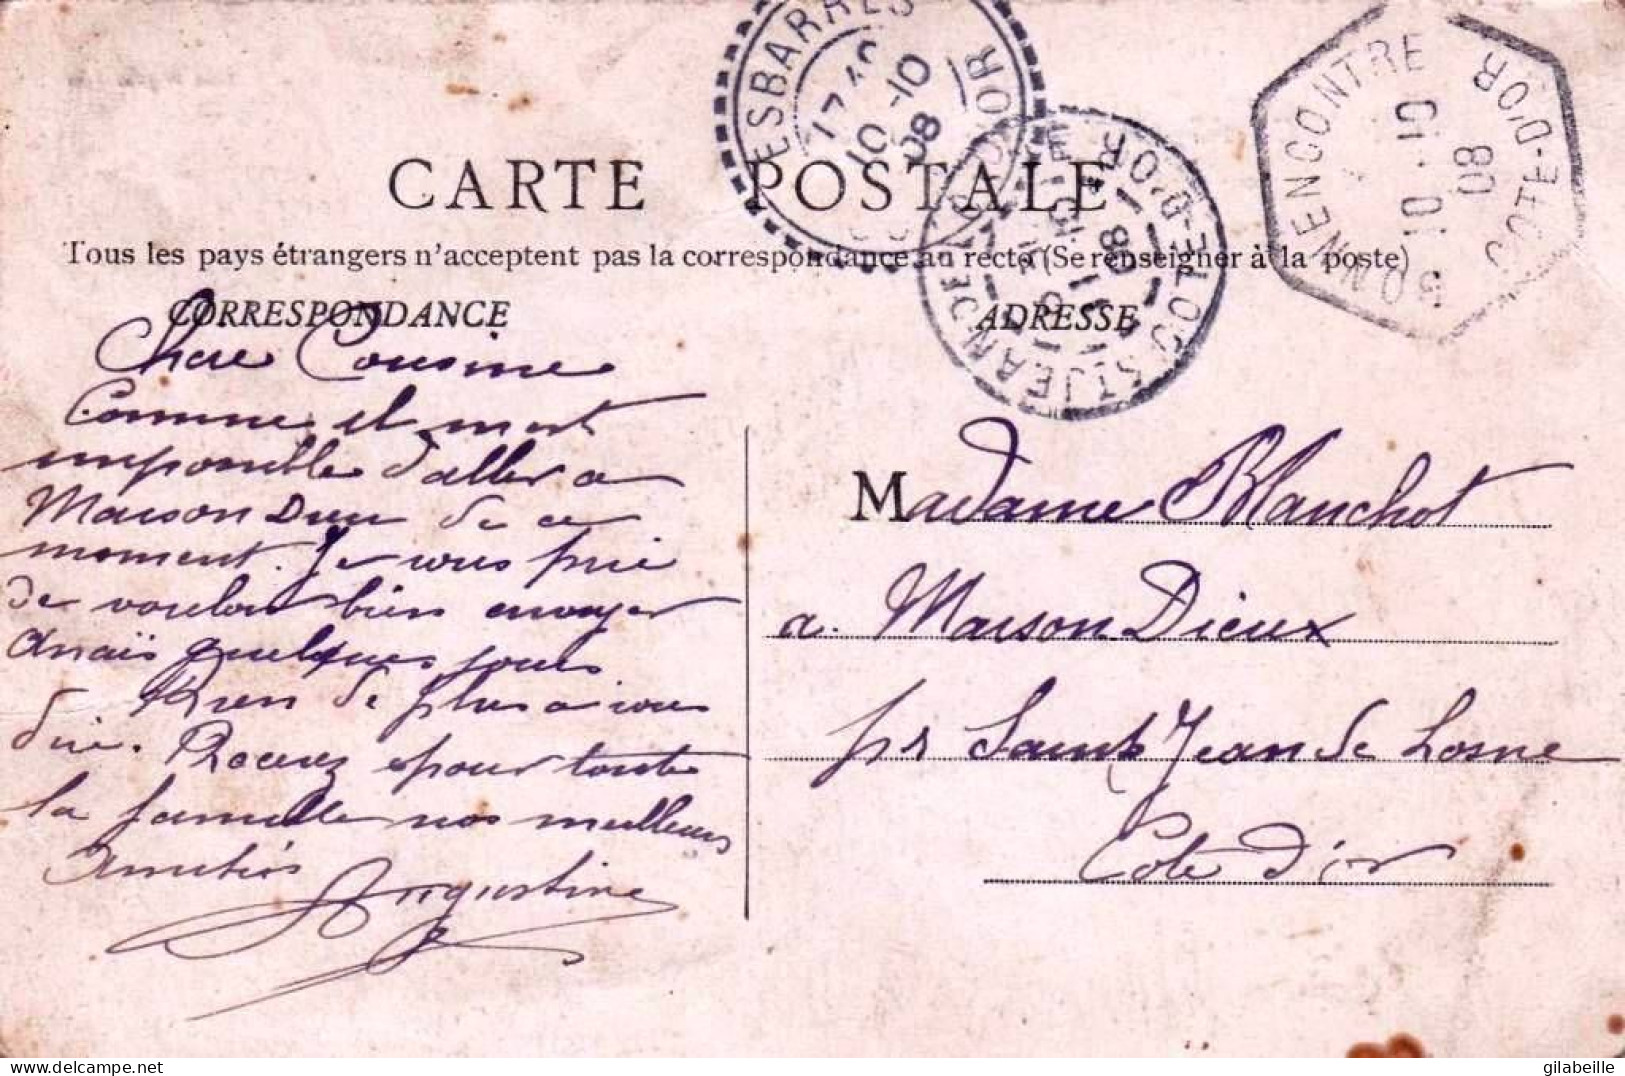 ESBARRES
17 45
10 - 10
08
D'OR
BONNENCONTRE
10 - 10
08
COTE-D'OR
CARTE POSTALE
Tous les pays étrangers n'acceptent pas la correspondance au recto (Se renseigner à la poste)
ST JEAN DE LOSNE COTE-D'OR
08
CORRESPONDANCE
ADRESSE
Chere Cousine
Comme il m'est
impossible d'aller a
Maison Dieu de ce
moment. Je vous prie
de vouloir bien envoyer
Anaïs quelques jours
Rien de plus a vous
dire. Recevez pour toute
la famille nos meilleurs
Amitiés
Augustine
Madame Blanchot
a Maison Dieux
pr Saint Jean de Losne
Cote d'or
gilabeille